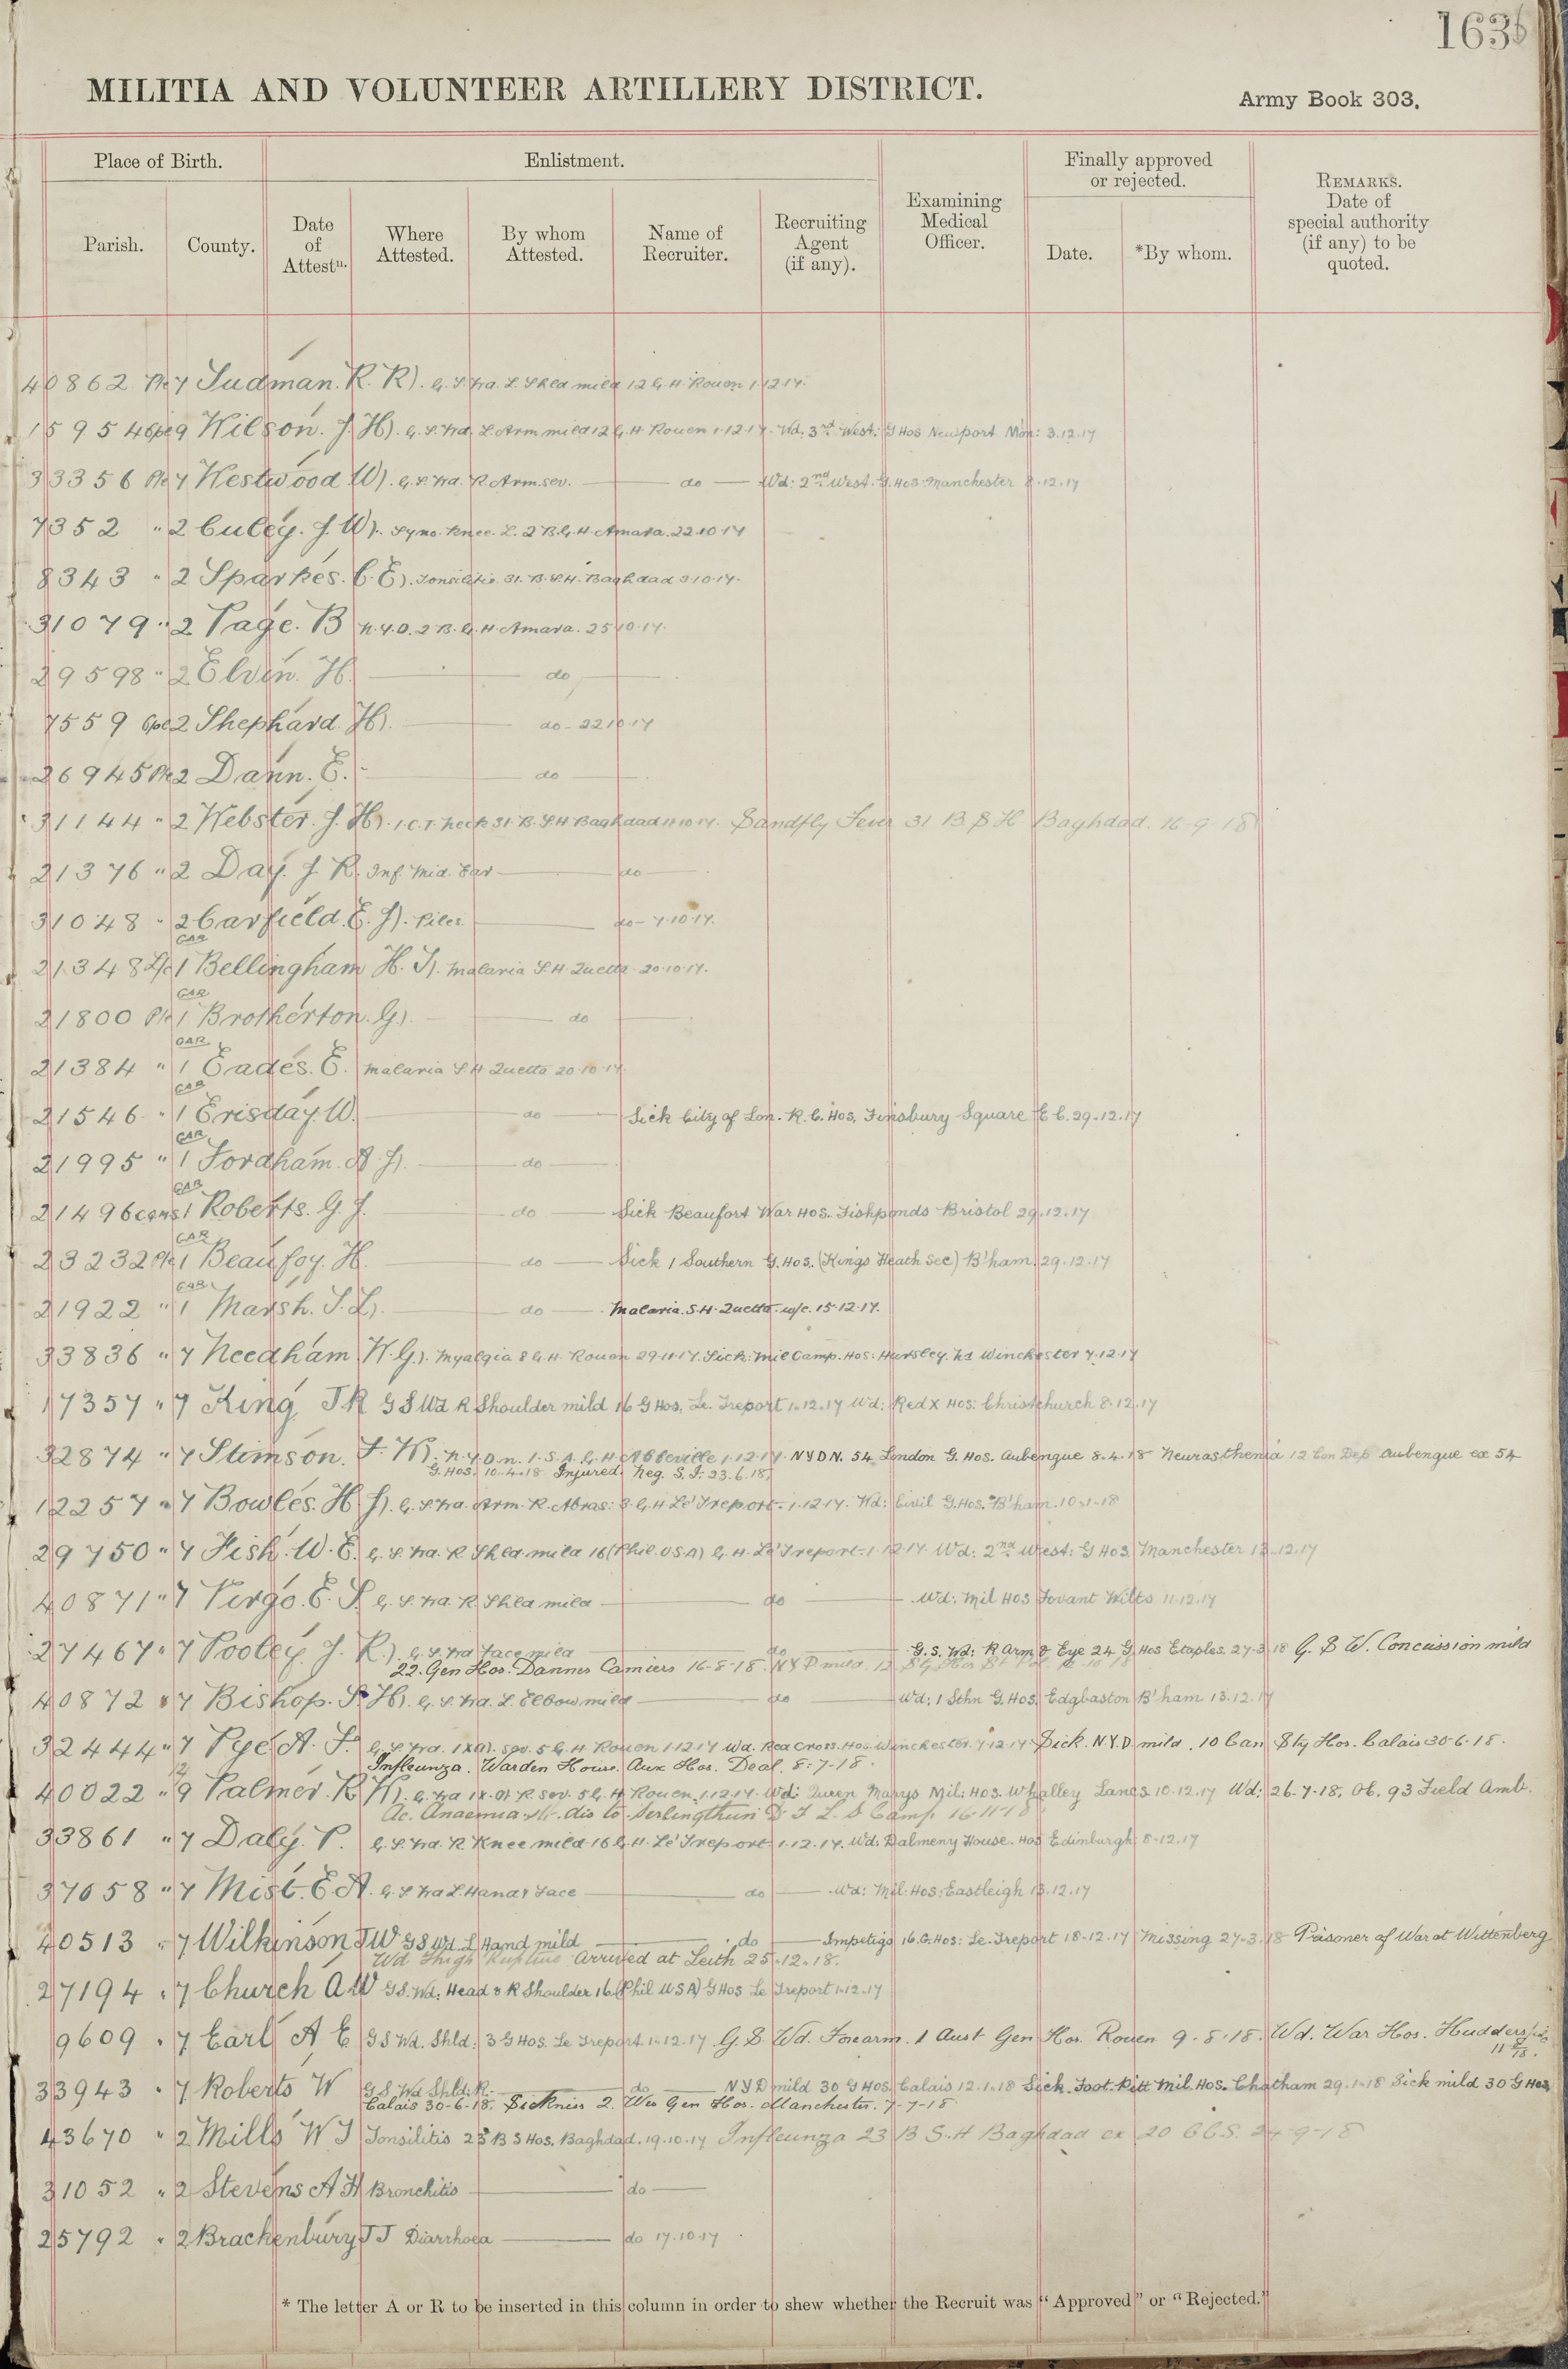 163
MILITIA AND VOLUNTEER ARTILLERY DISTRICT.
Army Book 303.
Place of Birth. Enlistment. Examining Medical Officer. Finally approved or rejected. REMARKS. Date of special authority (if any) to be quoted.
Parish. County. Date of Attestn. Where Attested. By whom Attested. Name of Recruiter. Recruiting Agent (if any). Date. *By whom.
40862 Pte 7 Sudman. R. R). G. S. Wd. L. Shld mild 12 G. H Rouen 1.12.17.
15954 Cpl 9 Wilson. J. H). G. S. Wd. L. Arm mild 12 G. H Rouen 1.12.17. Wd. 3rd West: G Hos Newport Mon: 3.12.17
33356 Pte 7 Westwood W). G. S. Wd. R. Arm. sev. do Wd: 2nd West. G. Hos. Manchester 8.12.17
7352 " 2 Culey. J. W). Syno. Knee. L. 2 B. G. H. Amara. 22.10.17
8343 " 2 Sparkes. C. E). Tonsilitis. 31. B. S. H. Baghdad 3.10.17.
31079 " 2 Page. B N. Y. D. 2 B. G. H. Amara. 25.10.17.
29598 " 2 Elvin. H. do
7559 Cpl 2 Shephard. H). do - 22.10.17
26945 Pte 2 Dann. E. do
31144 " 2 Webster. J. H). I. C. T. Neck 31. B. S H Baghdad 11.10.17. Sandfly Fever 31 B. S H Baghdad. 16-9-18
21376 " 2 Day. J. R. Inf. Mid. Ear do
31048 " 2 Carfield. E. J). Piles. do - 7.10.17.
GAR
21348 L/c 1 Bellingham H. J). Malaria S. H Quetta. 20.10.17.
GAR
21800 Pte 1 Brotherton. G). do
GAR
21384 " 1 Eades. E. Malaria S. H Quetta 20.10.17.
GAR
21546 " 1 Erisday. W. do Sick City of Lon. R. C. Hos. Finsbury Square E C. 29.12.17
GAR
21995 " 1 Fordham. A. J). do
GAR
21496 1 Roberts. G. J. do Sick Beaufort War Hos. Fishponds Bristol 29.12.17
GAR
23232 Pte 1 Beaufoy. H. do Sick 1 Southern G. Hos. (Kings Heath Sec) B'ham 29.12.17
GAR
21922 " 1 Marsh. S. L). do Malaria. S. H. Quetta. w/e. 15.12.17.
33836 " 7 Needham W. G). Myalgia 8 G. H. Rouen 29.11.17. Sick: Mil Camp. Hos: Hursley. Nr Winchester 7.12.17
17357 " 7 King J R G S Wd R Shoulder mild 16 G Hos. Le Treport 1.12.17 Wd: Red X Hos: Christchurch 8.12.17
32874 " 7 Stimson. F. W). N. Y. D. n. 1. S. A. G. H Abbeville 1.12.17. NYDN. 54 London G. Hos. Aubengue 8.4.18 Neurasthenia 12 Con Dep Aubengue ex 54
G. Hos. 10.4.18 Injured. Neg. S. I. 23.6.18.
12257 " 7 Bowles. H. J). G. S. Wd. Arm. R. Abras: 3 G. H Le Treport. 1.12.17. Wd: Civil G. Hos. B'ham. 10.1.18
29750 " 7 Fish. W. E. G. S. Wd. R Shld mild 16 (Phil. U S A) G. H. Le Treport. 1.12.17 Wd: 2nd West: G Hos. Manchester 13.12.17
40871 " 7 Virgo. E. S. G. S. Wd. R Shld mild do Wd: Mil Hos Fovant Wilts 11.12.17
27467 " 7 Pooley. J. R). G. S. Wd Face mild do G. S. Wd: R Arm & Eye 24 G Hos Etaples. 27.3.18 G. S W. Concussion mild
22. Gen Hos. Dannes Camiers 16-8-18. N Y D mild.
40872 " 7 Bishop. S. H). G. S. Wd. L. Elbow mild do Wd: 1 Sthn G. Hos. Edgbaston B'ham 13.12.17
32444 " 7 Pye A. F. G. S. Wd. sev. 5 G. H Rouen 1.12.17 Wd. Red Cross. Hos Winchester. 7.12.17 Sick. N. Y. D mild. 10 Can Sty Hos. Calais 30-6-18.
Influenza. Warden House. Aux Hos. Deal. 8-7-18.
40022 " 9 Palmer. R. W). G. Wd R sev. 5 G. H Rouen. 1.12.17. Wd: Queen Marys Mil: Hos. Whalley Lancs 10.12.17 Wd: 26-7-18. Ob. 93 Field Amb.
Ac. Anaemia dis to Terlingthun D I L S Camp 16-11-18
33861 " 7 Daly. P. G. S. Wd. R Knee mild 16 G. H. Le Treport 1.12.17. Wd: Dalmeny House. Hos Edinburgh: 8-12.17
37658 " 7 Mist. E. A. G. S Wd L. Hand & Face do Wd: Mil: Hos: Eastleigh 13.12.17
40513 " 7 Wilkinson J W G S Wd L Hand mild do Impetigo 16. G. Hos: Le Treport 18-12.17 Missing 27-3-18 Prisoner of War at Wittenberg
Wd Thigh Arrived at Leith 25.12.18.
27194 " 7 Church A W G S. Wd: Head & R Shoulder 16 (Phil U S A) G Hos Le Treport 1.12.17
9609 " 7 Earl A E G S Wd. Shld: 3 G Hos. Le Treport. 1.12.17 G. S. Wd. Forearm. 1 Aust Gen Hos. Rouen 9-8-18. Wd. War Hos. Huddersfield
11 8/18.
33943 " 7 Roberts W G S Wd Shld: R. do N Y D mild 30 G Hos. Calais 12.1.18 Sick. Foot. Pitt Mil. Hos. Chatham 29.1.18 Sick mild 30 G Hos.
Calais 30-6-18. Sickness 2. Wes Gen Hos. Manchester. 7-7-18
43670 " 2 Mills W J Tonsilitis 23 B S Hos. Baghdad. 19.10.17 Infleunza 23 B S. H Baghdad ex 20 C C S. 24-9-18
31052 " 2 Stevens A H Bronchitis do
25792 " 2 Brackenbury J J Diarrhoea do 17.10.17
* The letter A or R to be inserted in this column in order to shew whether the Recruit was "Approved" or "Rejected."